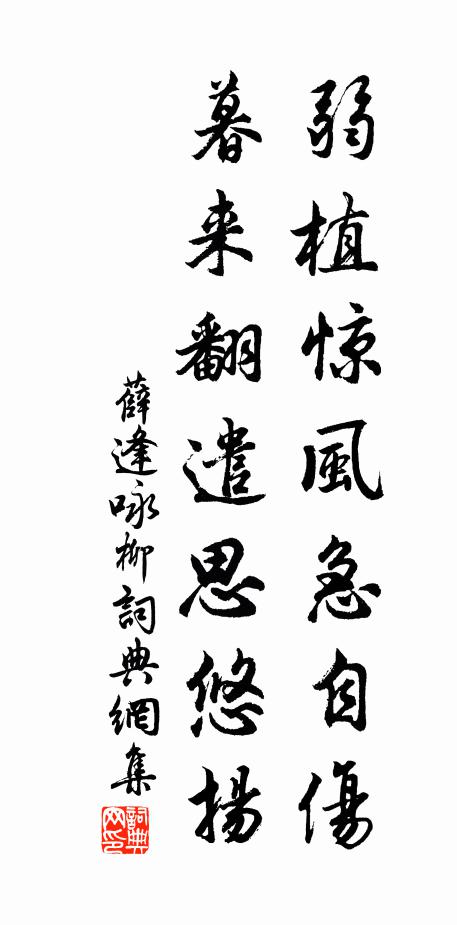 弱植惊風急自傷
暮来翻遣思悠揚
薛逢咏柳詞典網集
詞典网印